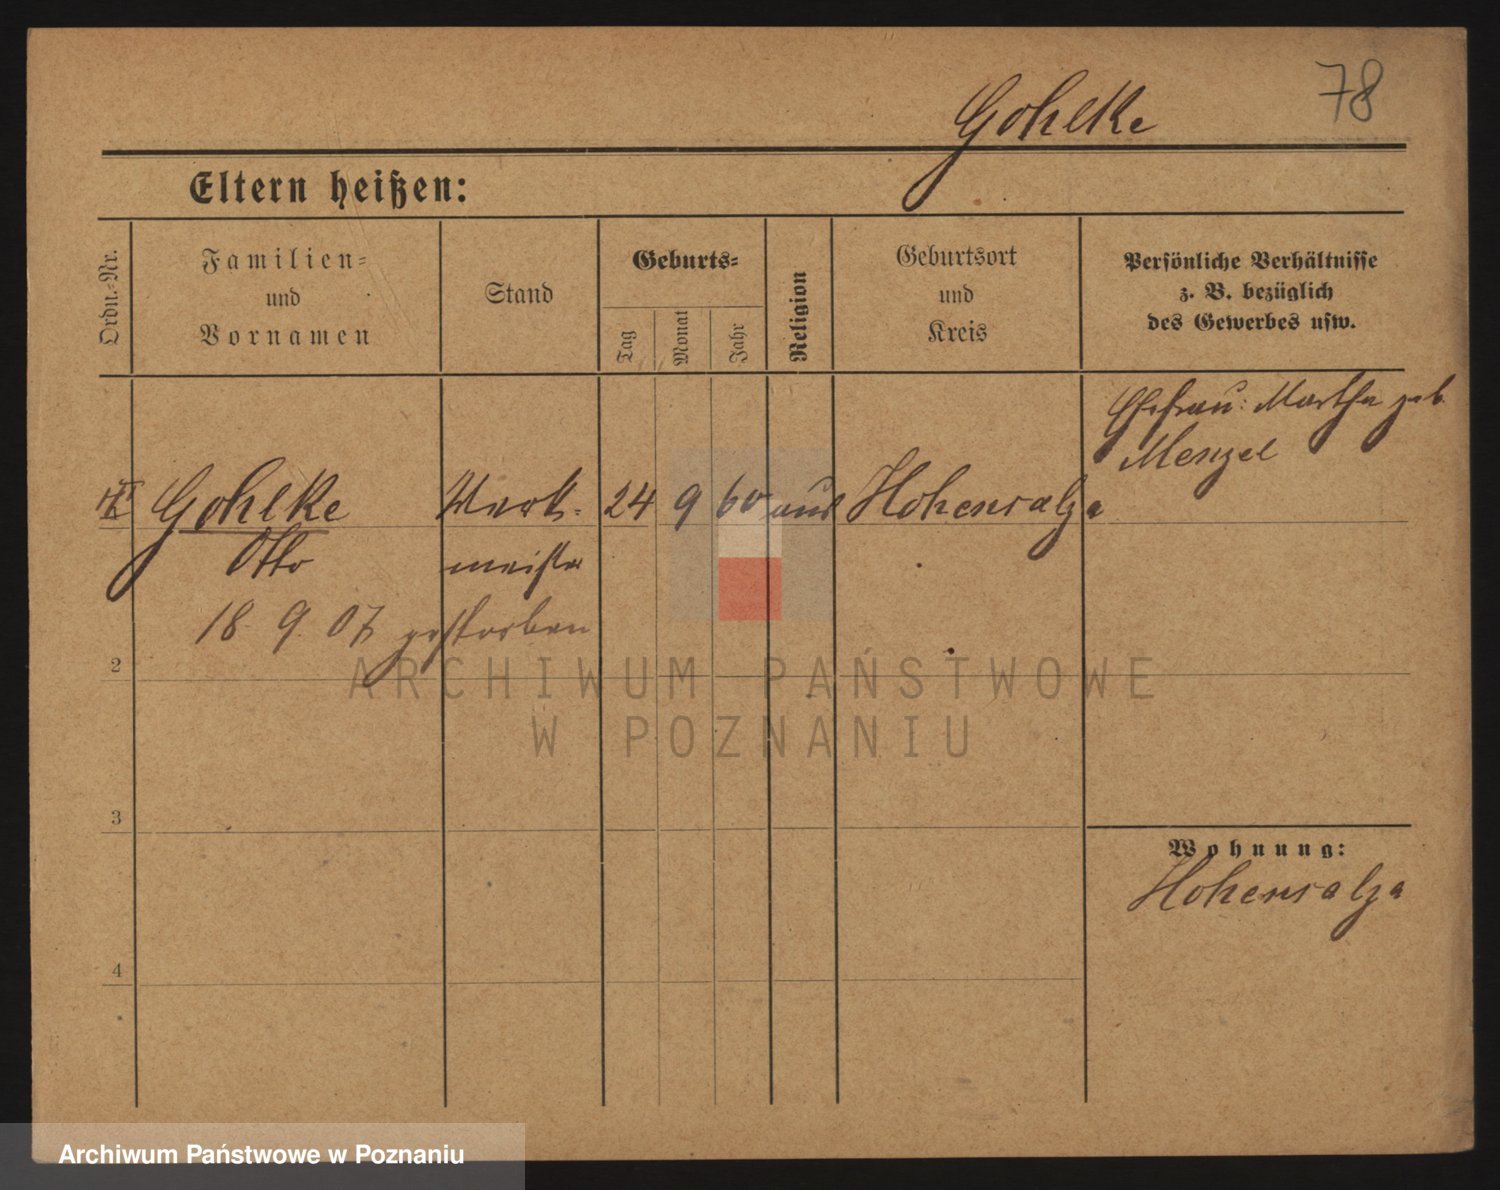 78
Gohlke
Eltern heißen:
Ordn.-Nr.
Familien-
und
Vornamen
Stand
Geburts-
Tag
Monat
Jahr
Religion
Geburtsort
und
Kreis
Persönliche Verhältnisse
z. B. bezüglich
des Gewerbes usw.
Ehefrau: Martha geb.
Menzel
Gohlke Werk- 24 9 60 aus Hohensalza
Otto meister
18 9. 07 gestorben
2
ARCHIWUM PAŃSTWOWE
W POZNANIU
3
Wohnung:
Hohensalza
4
Archiwum Państwowe w Poznaniu